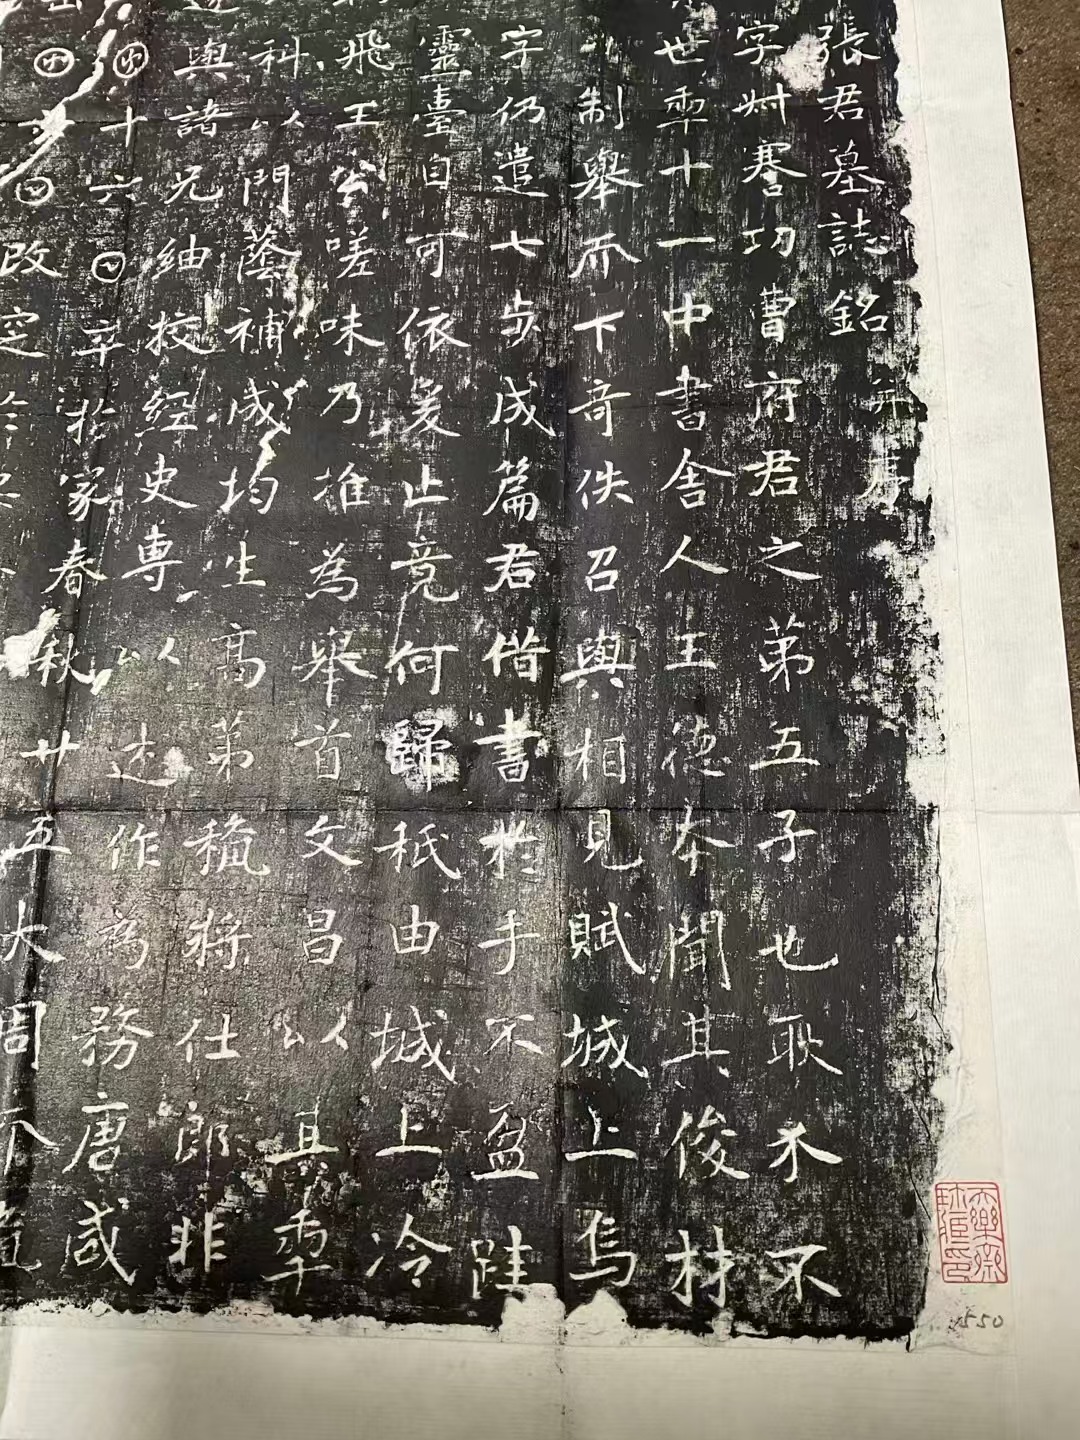 張君墓誌銘 并序
字叔謇功曹府君之第五子也耿介不
世𠡦十一中書舍人王德本聞其俊材
制舉而下奇佚召與相見賦城上烏
字仍遣七步成篇君借書於手不盈跬
靈臺自可依爰止竟何歸秪由城上冷
飛王公嗟味乃推為舉首文昌以其𠡦
科以門蔭補成均生高第𥠢將仕郎非
與諸兄紬挍經史專以述作為務唐咸
囝十六𡆠卒於家春秋廿五大周
囝 𡆠改窆於安
550